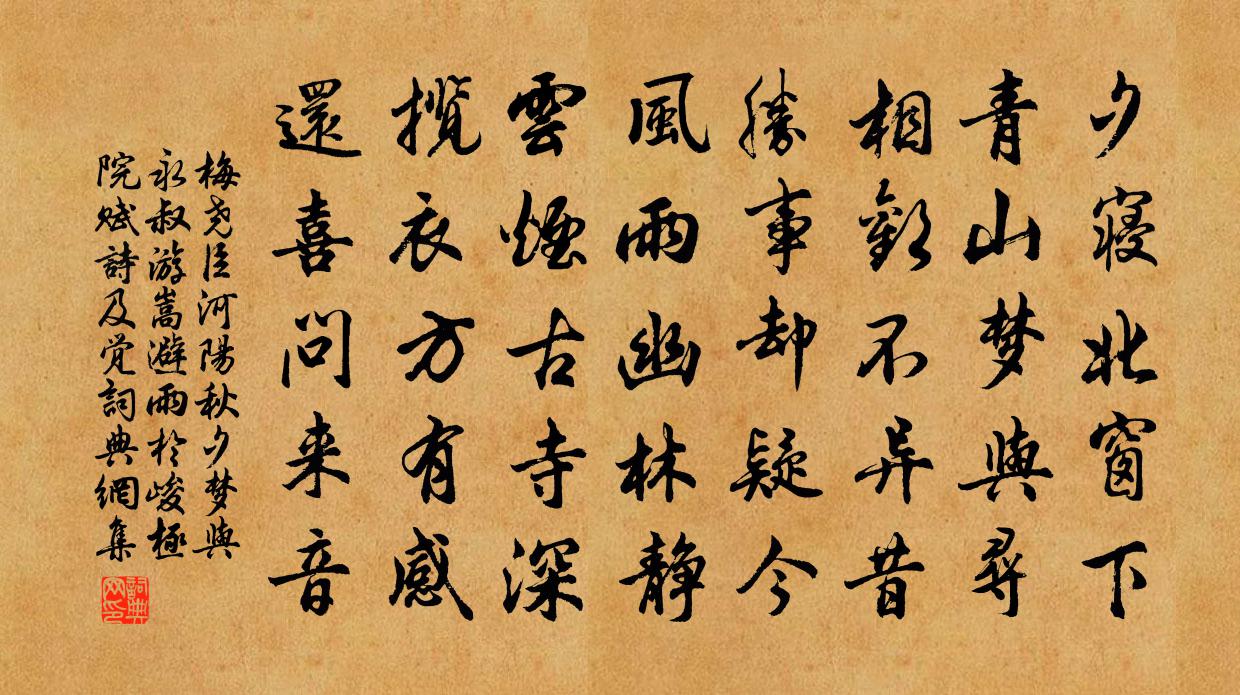 夕寢北窗下
青山梦與尋
相歡不异昔
勝事却疑今
風雨幽林静
雲煙古寺深
攬衣方有感
還喜問来音
梅尧臣河陽秋夕梦與
永叔游嵩避雨於峻極
院赋詩及觉詞典網集
詞典网印